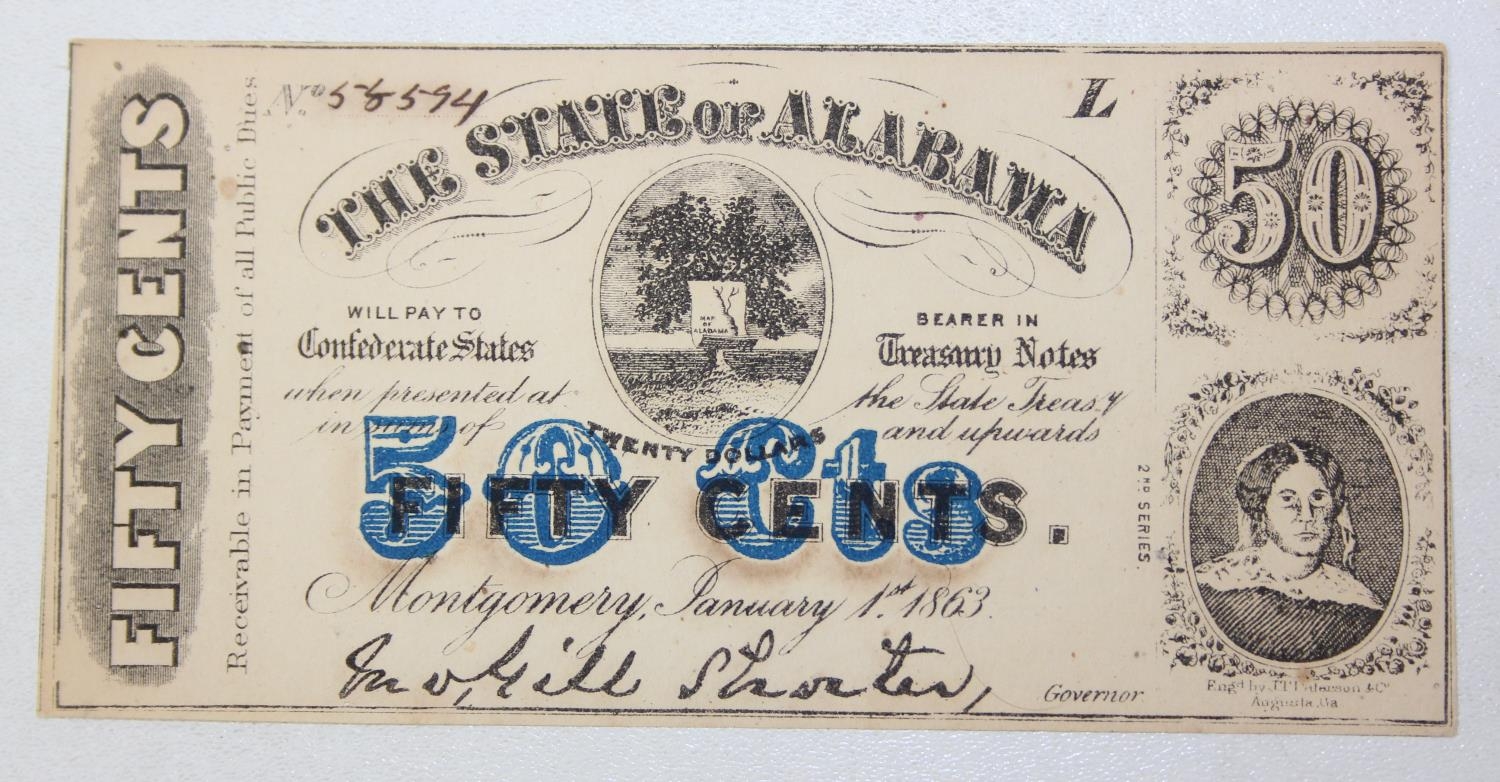 FIFTY CENTS
Receivable in Payment of all Public Dues
No 58594
L
THE STATE OF ALABAMA
50
MAP
OF
ALABAMA
WILL PAY TO
BEARER IN
Confederate States
Treasury Notes
when presented at
the State Treasy
in sums of
TWENTY DOLLARS
and upwards
50 Cts
FIFTY CENTS.
2ND SERIES.
Montgomery, January 1st 1863.
Jno, Gill Shorter,
Governor
Engd by J.T. Paterson & Co
Augusta, Ga